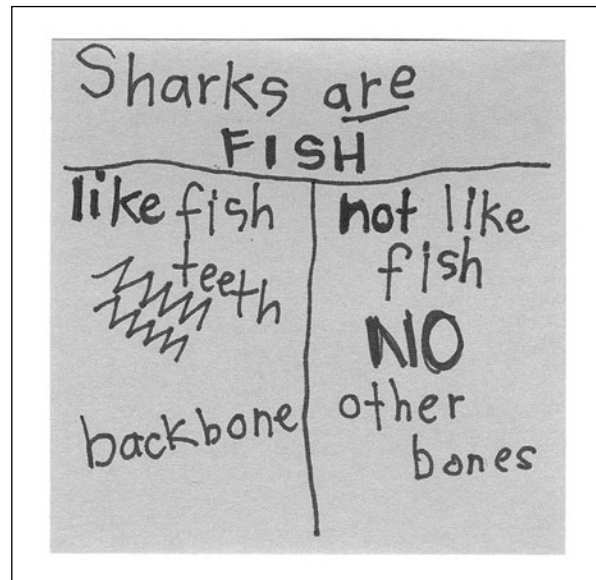 Sharks are
FISH
like fish
teeth
backbone
not like
fish
NO
other
bones